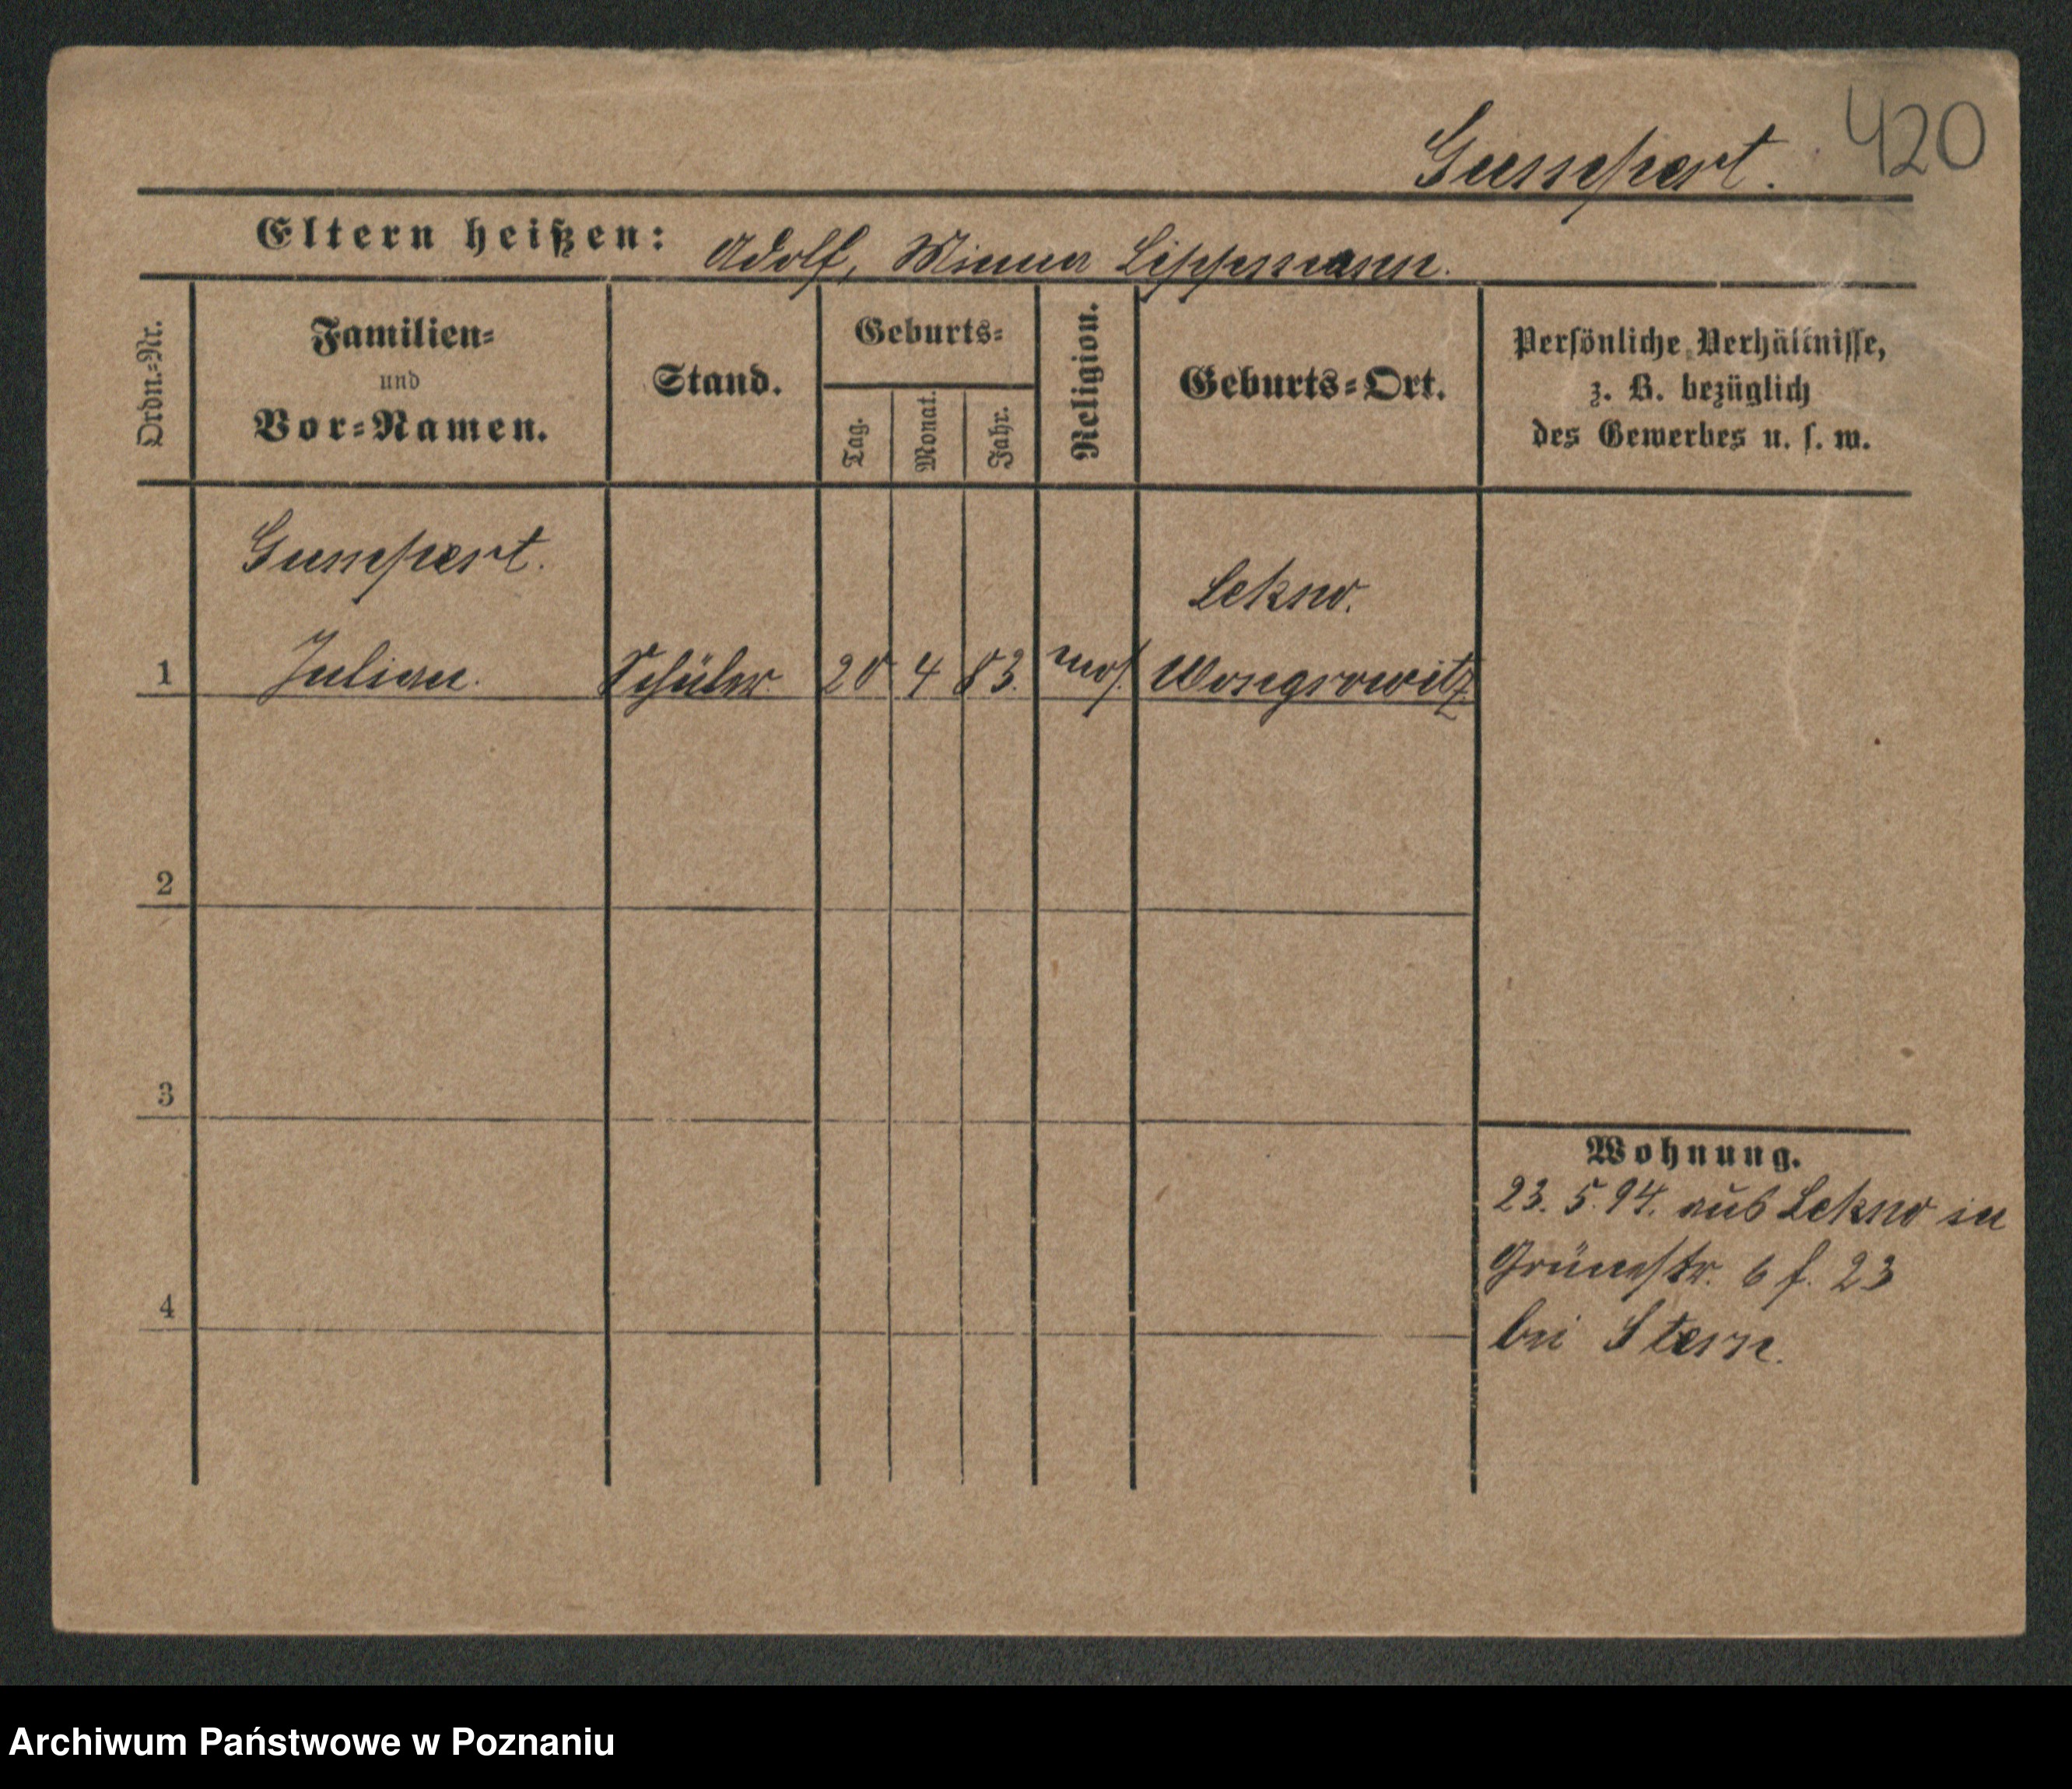 420
Gumpert.
Eltern heißen: Adolf, Minna Lippmann.
Ordn.-Nr.
Familien-
und
Vor-Namen.
Stand.
Geburts-
Tag.
Monat.
Jahr.
Religion.
Geburts-Ort.
Persönliche Verhältnisse,
z. B. bezüglich
des Gewerbes u. s. w.
Gumpert.
Lekno.
1 Julian. Schüler 20 4 83. mos. Wongrowitz
2
3
4
Wohnung.
23. 5. 94. aus Lekno in
Grünestr. 6 f. 23
bei Stern.
Archiwum Państwowe w Poznaniu